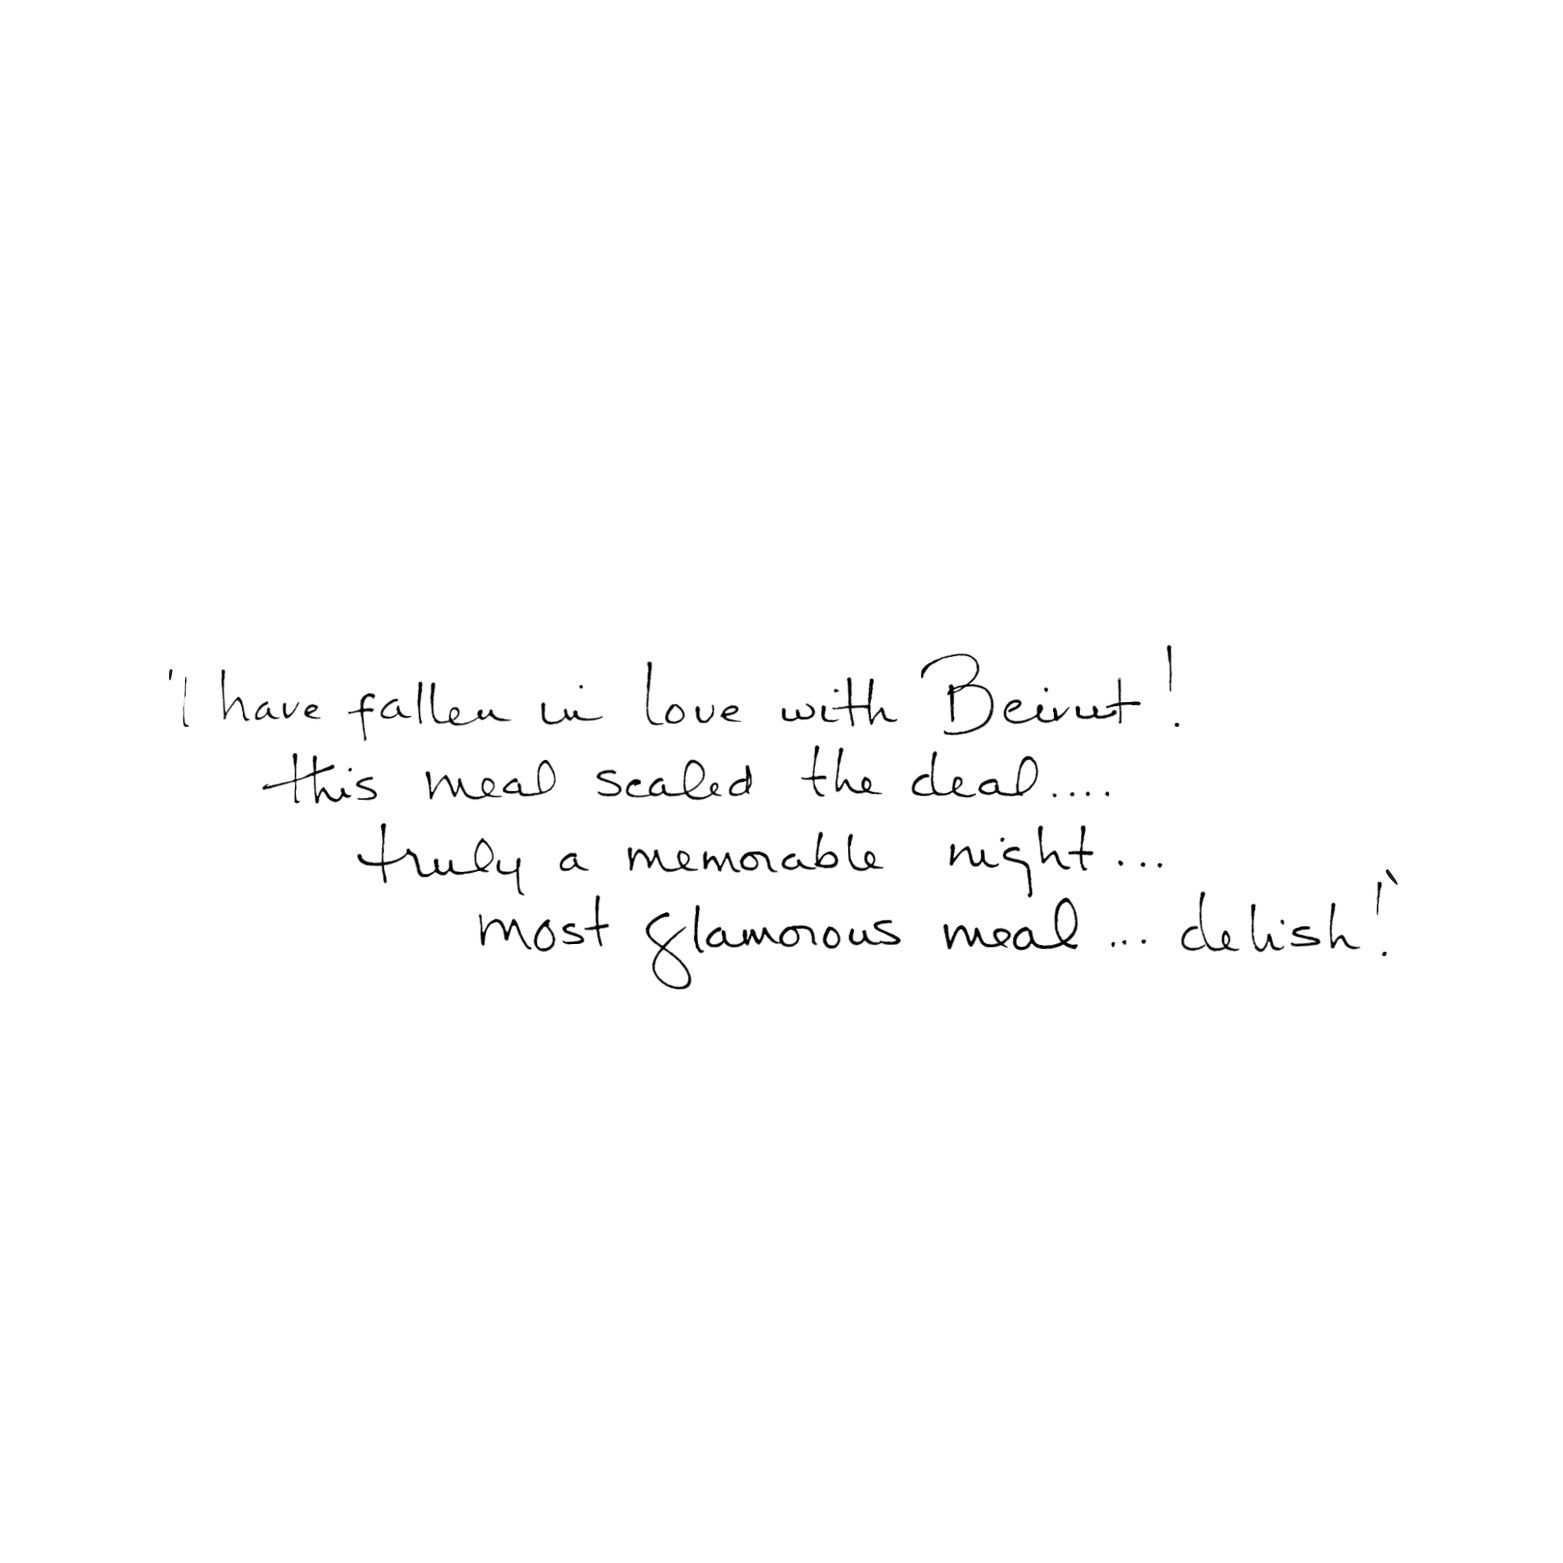 'I have fallen in love with Beirut!
this meal sealed the deal....
truly a memorable night...
most glamorous meal... delish!'